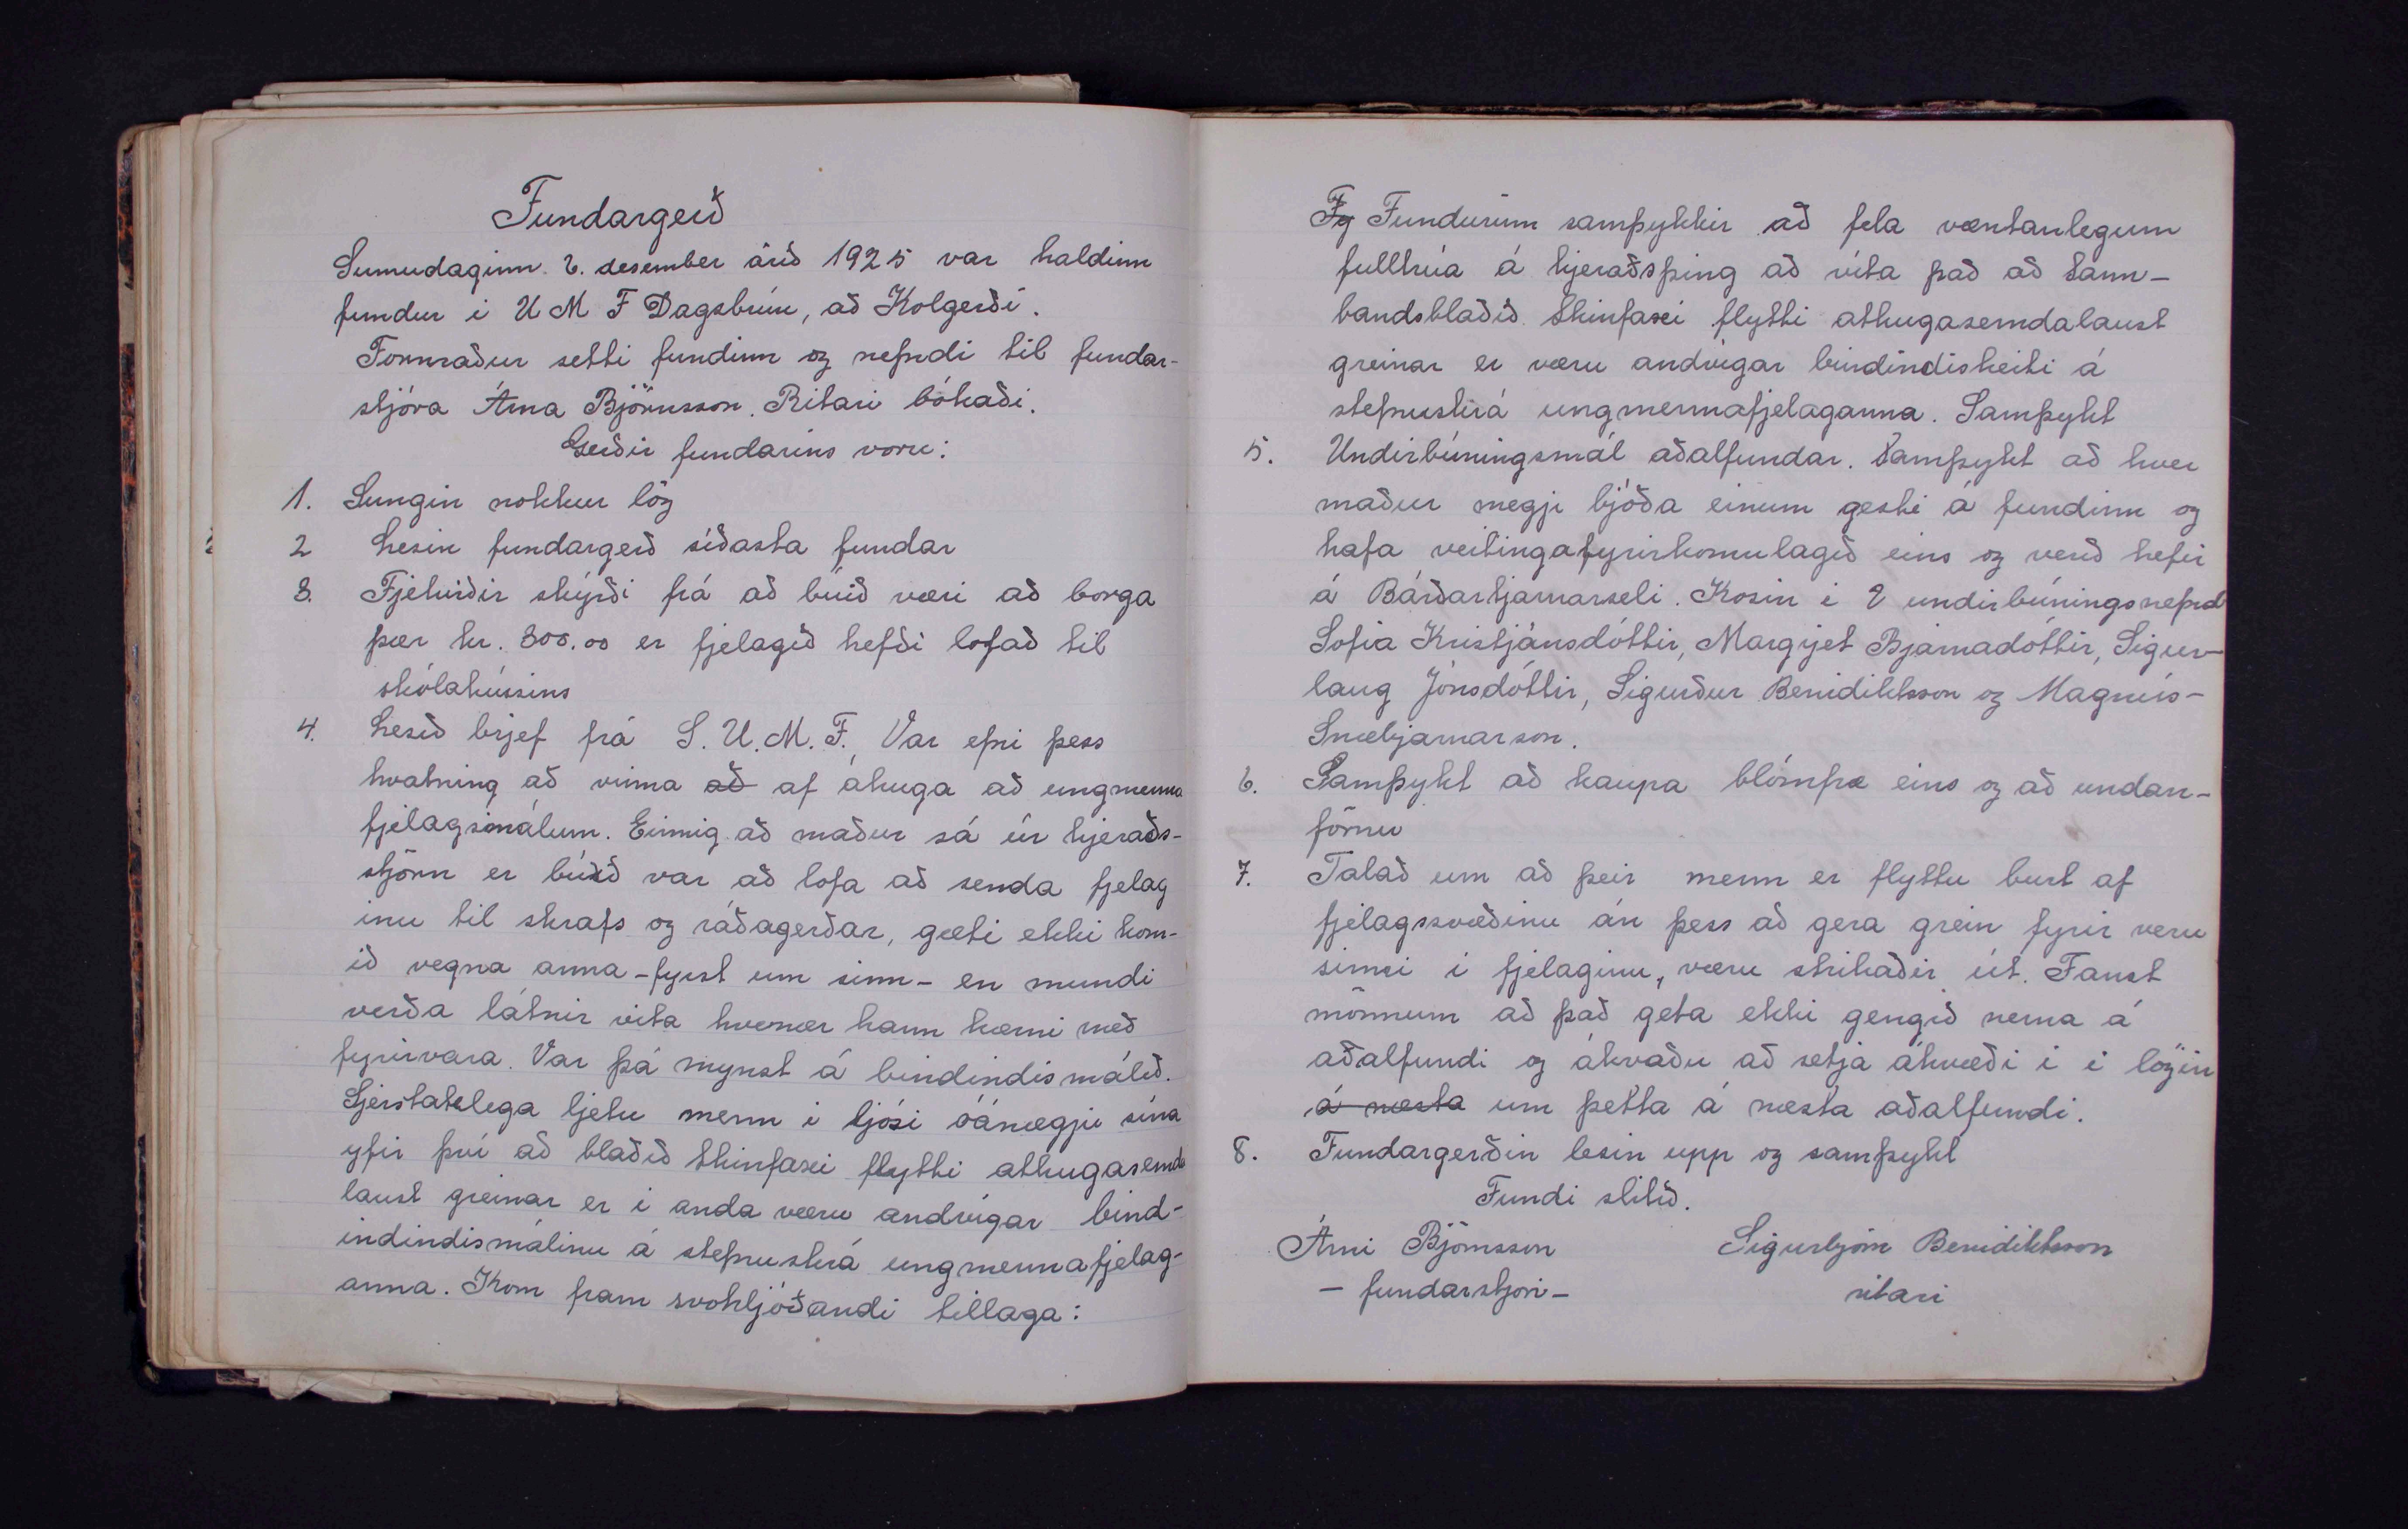 Fundargerð
Sunnudaginn 6. desember árið 1925 var haldinn
fundur i U M F Dagsbrún, að Kolgerði.
Formaður setti fundinn og nefndi til fundar-
stjóra Árna Björnsson. Ritari bókaði.
Gerðir fundarins voru:
1. Sungin nokkur lög
2 Lesin fundargerð síðasta fundar
3. Fjehirðir skýrði frá að búið væri að borga
þær kr. 300.00 er fjelagið hefði lofað til
skólahússins
4. Lesið brjef frá S. U. M. F. Var efni þess
hvatning að vinna að af áhuga að ungmenna
fjelagsmálum. Einnig að maður sá úr hjeraðs-
stjórn er búið var að lofa að senda fjelag
inu til skrafs og ráðagerðar, gæti ekki kom-
ið vegna anna - fyrst um sinn - en mundi
verða látnir vita hvenær hann kæmi með
fyrirvara. Var þá mynst á bindindismálið.
Sjerstaklega ljetu menn i ljósi óánægju sína
yfir því að blaðið Skinfaxi flytti athugasemda
laust greinar er i anda væru andvígar bind-
indindismálinu á stefnuskrá ungmennafjelag-
anna. Kom fram svohljóðandi tillaga:
Fg Fundurinn samþykkir að fela væntanlegum
fulltrúa á hjeraðsþing að víta það að Sam-
bandsblaðið Skinfaxi flytti athugasemdalaust
greinar er væru andvígar bindindisheiti á
stefnuskrá ungmennafjelaganna. Samþykt
5. Undirbúningsmál aðalfundar. Samþykt að hver
maður megji bjóða einum gesti á fundinn og
hafa veitingafyrirkomulagið eins og verið hefir
á Bárðartjarnarseli. Kosin i 2 undirbúningsnefnd
Sofia Kristjánsdóttir, Margrjet Bjarnadóttir, Sigur-
laug Jónsdóttir, Sigurður Benidiktsson og Magnús-
Snæbjarnarson.
6. Samþykt að kaupa blómfræ eins og að undan-
förnu
7. Talað um að þeir menn er flyttu burt af
fjelagssvæðinu án þess að gera grein fyrir veru
sinni i fjelaginu, væru strikaðir út. Fanst
mönnum að það geta ekki gengið nema á
aðalfundi og ákváðu að setja ákvæði i i lögin
á næsta um þetta á næsta aðalfundi.
8. Fundargerðin lesin upp og samþykt
Fundi slitið.
Árni Björnsson Sigurbjörn Benidiktsson
- fundarstjori - ritari